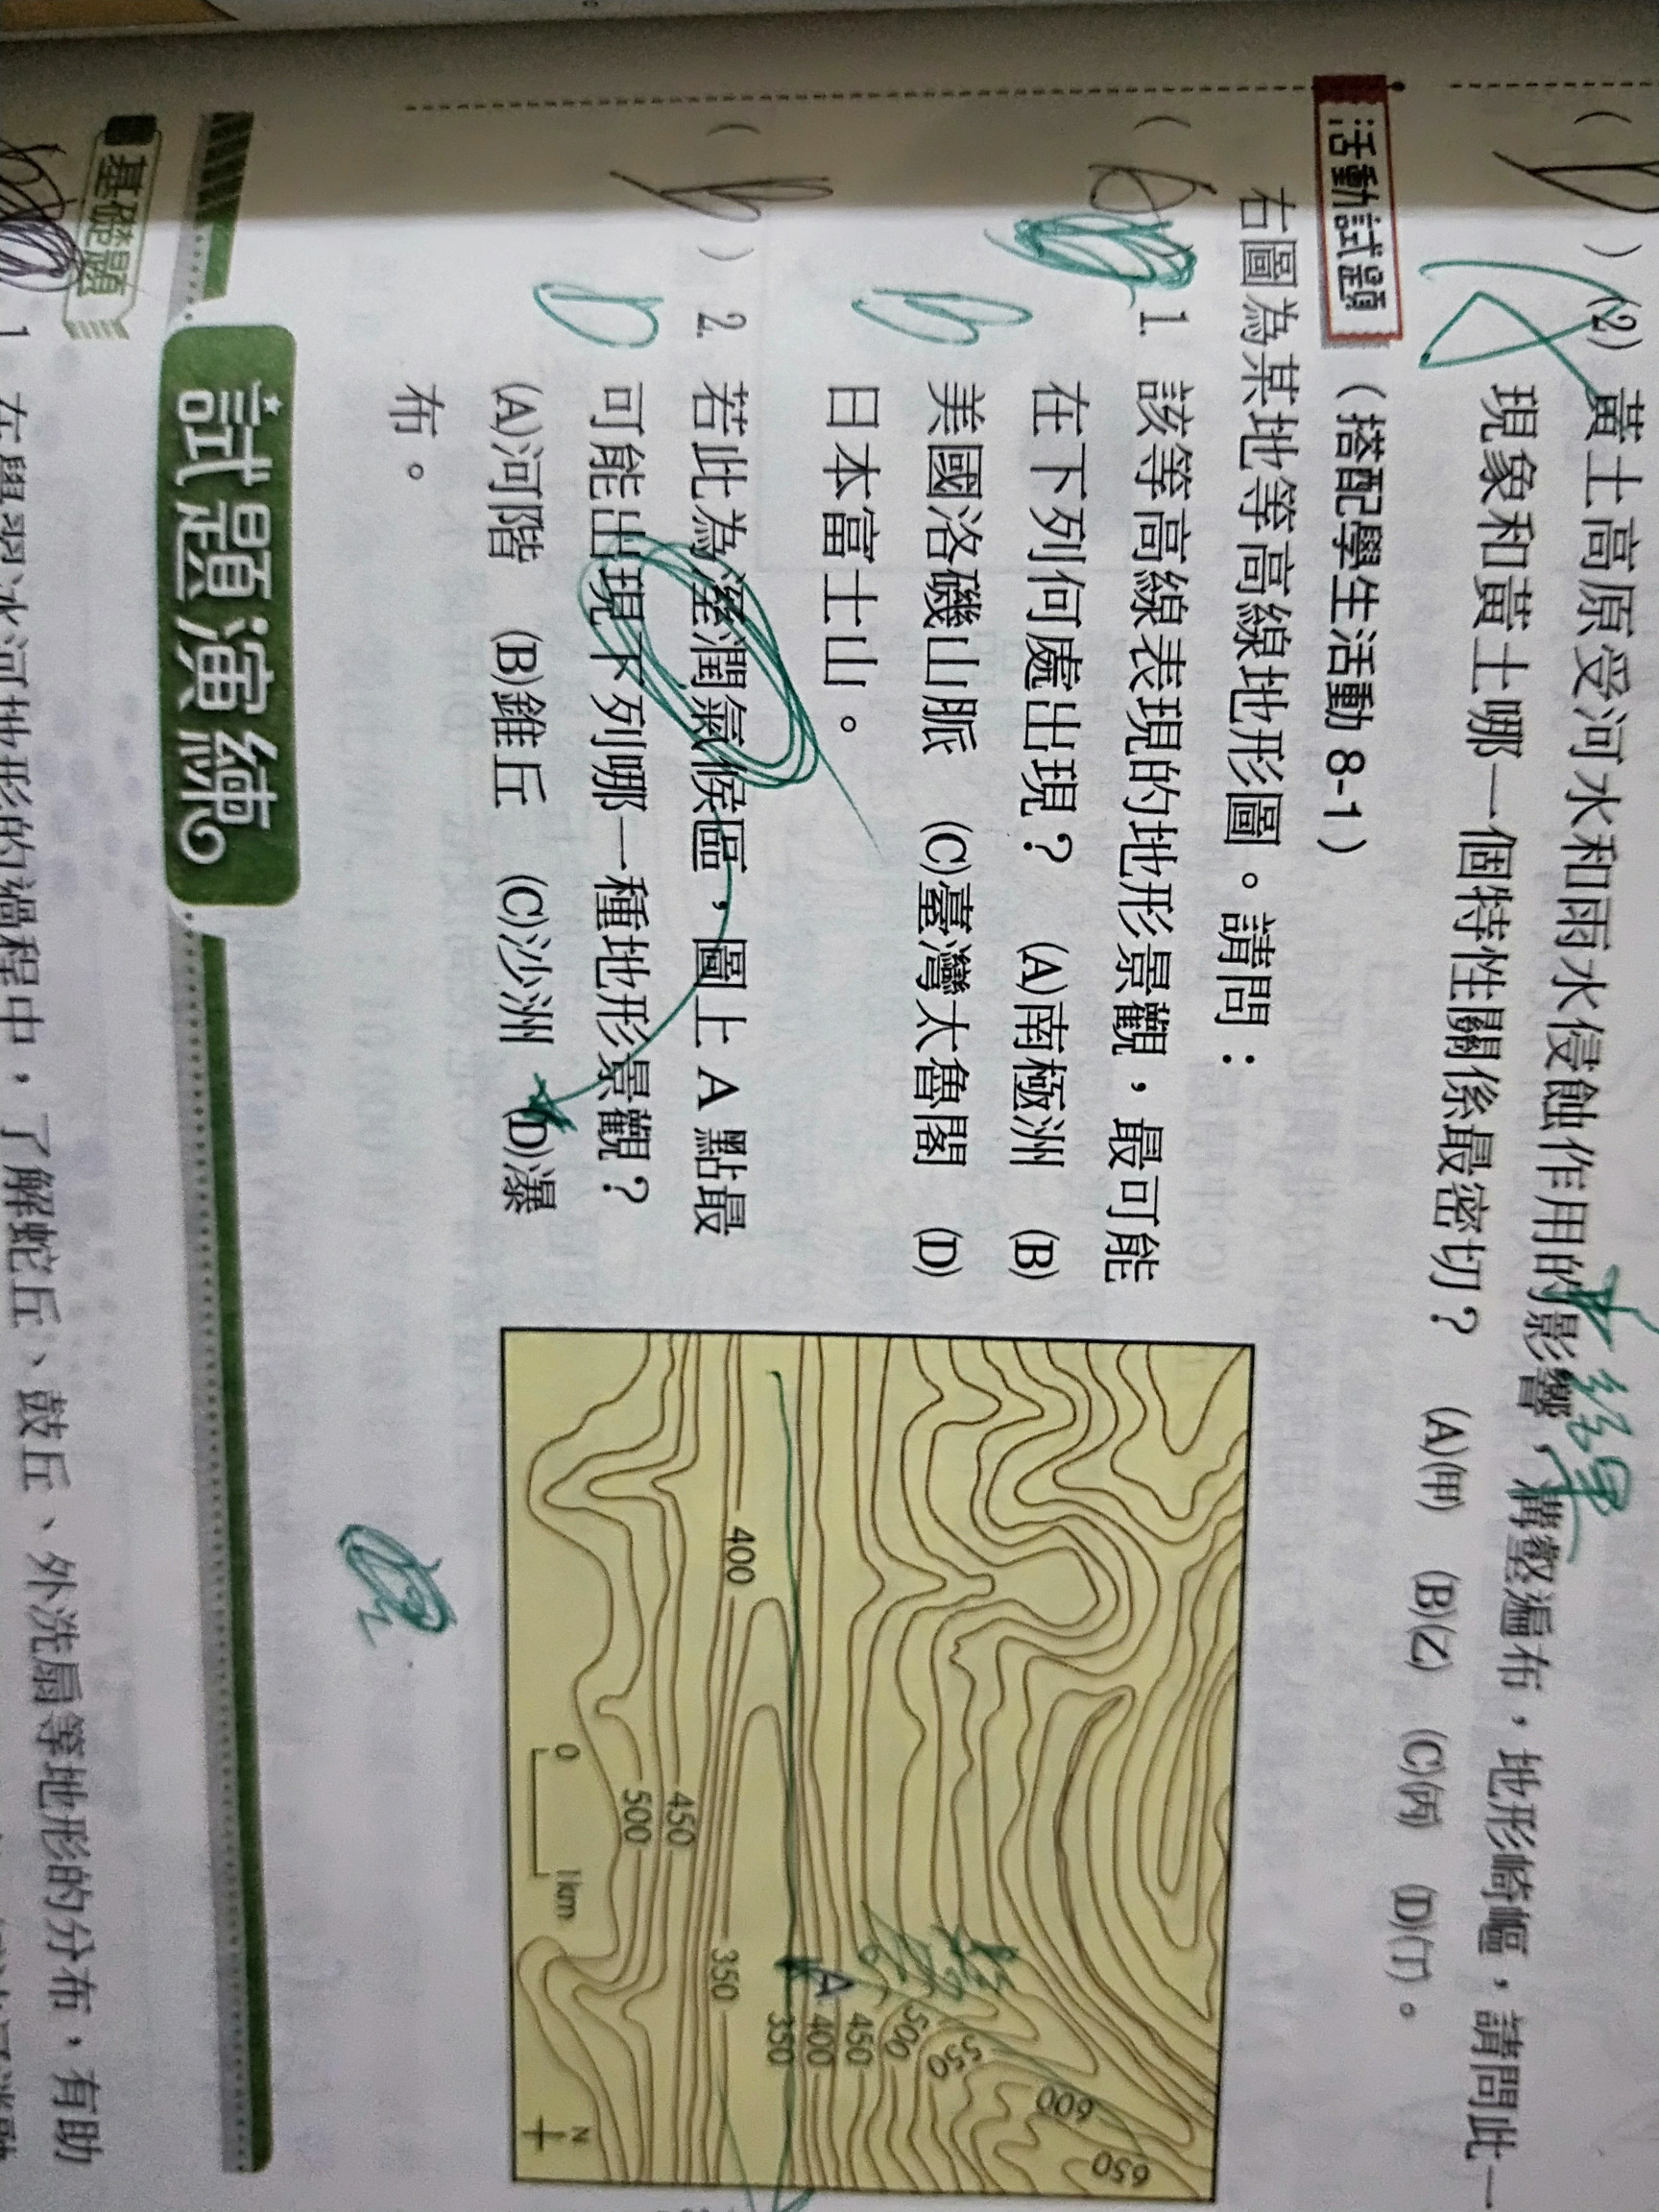 (2) 黃土高原受河水和雨水侵蝕作用的影響，溝壑遍布，地形崎嶇，請問此一
現象和黃土哪一個特性關係最密切？ (A)甲 (B)乙 (C)丙 (D)丁。
活動試題 （搭配學生活動 8-1）
右圖為某地等高線地形圖。請問：
1. 該等高線表現的地形景觀，最可能
在下列何處出現？ (A)南極洲 (B)
美國洛磯山脈 (C)臺灣太魯閣 (D)
日本富士山。
B
2. 若此為溼潤氣候區，圖上 A 點最
可能出現下列哪一種地形景觀？
D
(A)河階 (B)錐丘 (C)沙洲 (D)瀑
布。
400
450
500
350
A
350
400
450
500
550
600
650
0 1km
N
試題演練
基礎題
1. 在學習冰河地形的過程中，了解蛇丘、鼓丘、外洗扇等地形的分布，有助